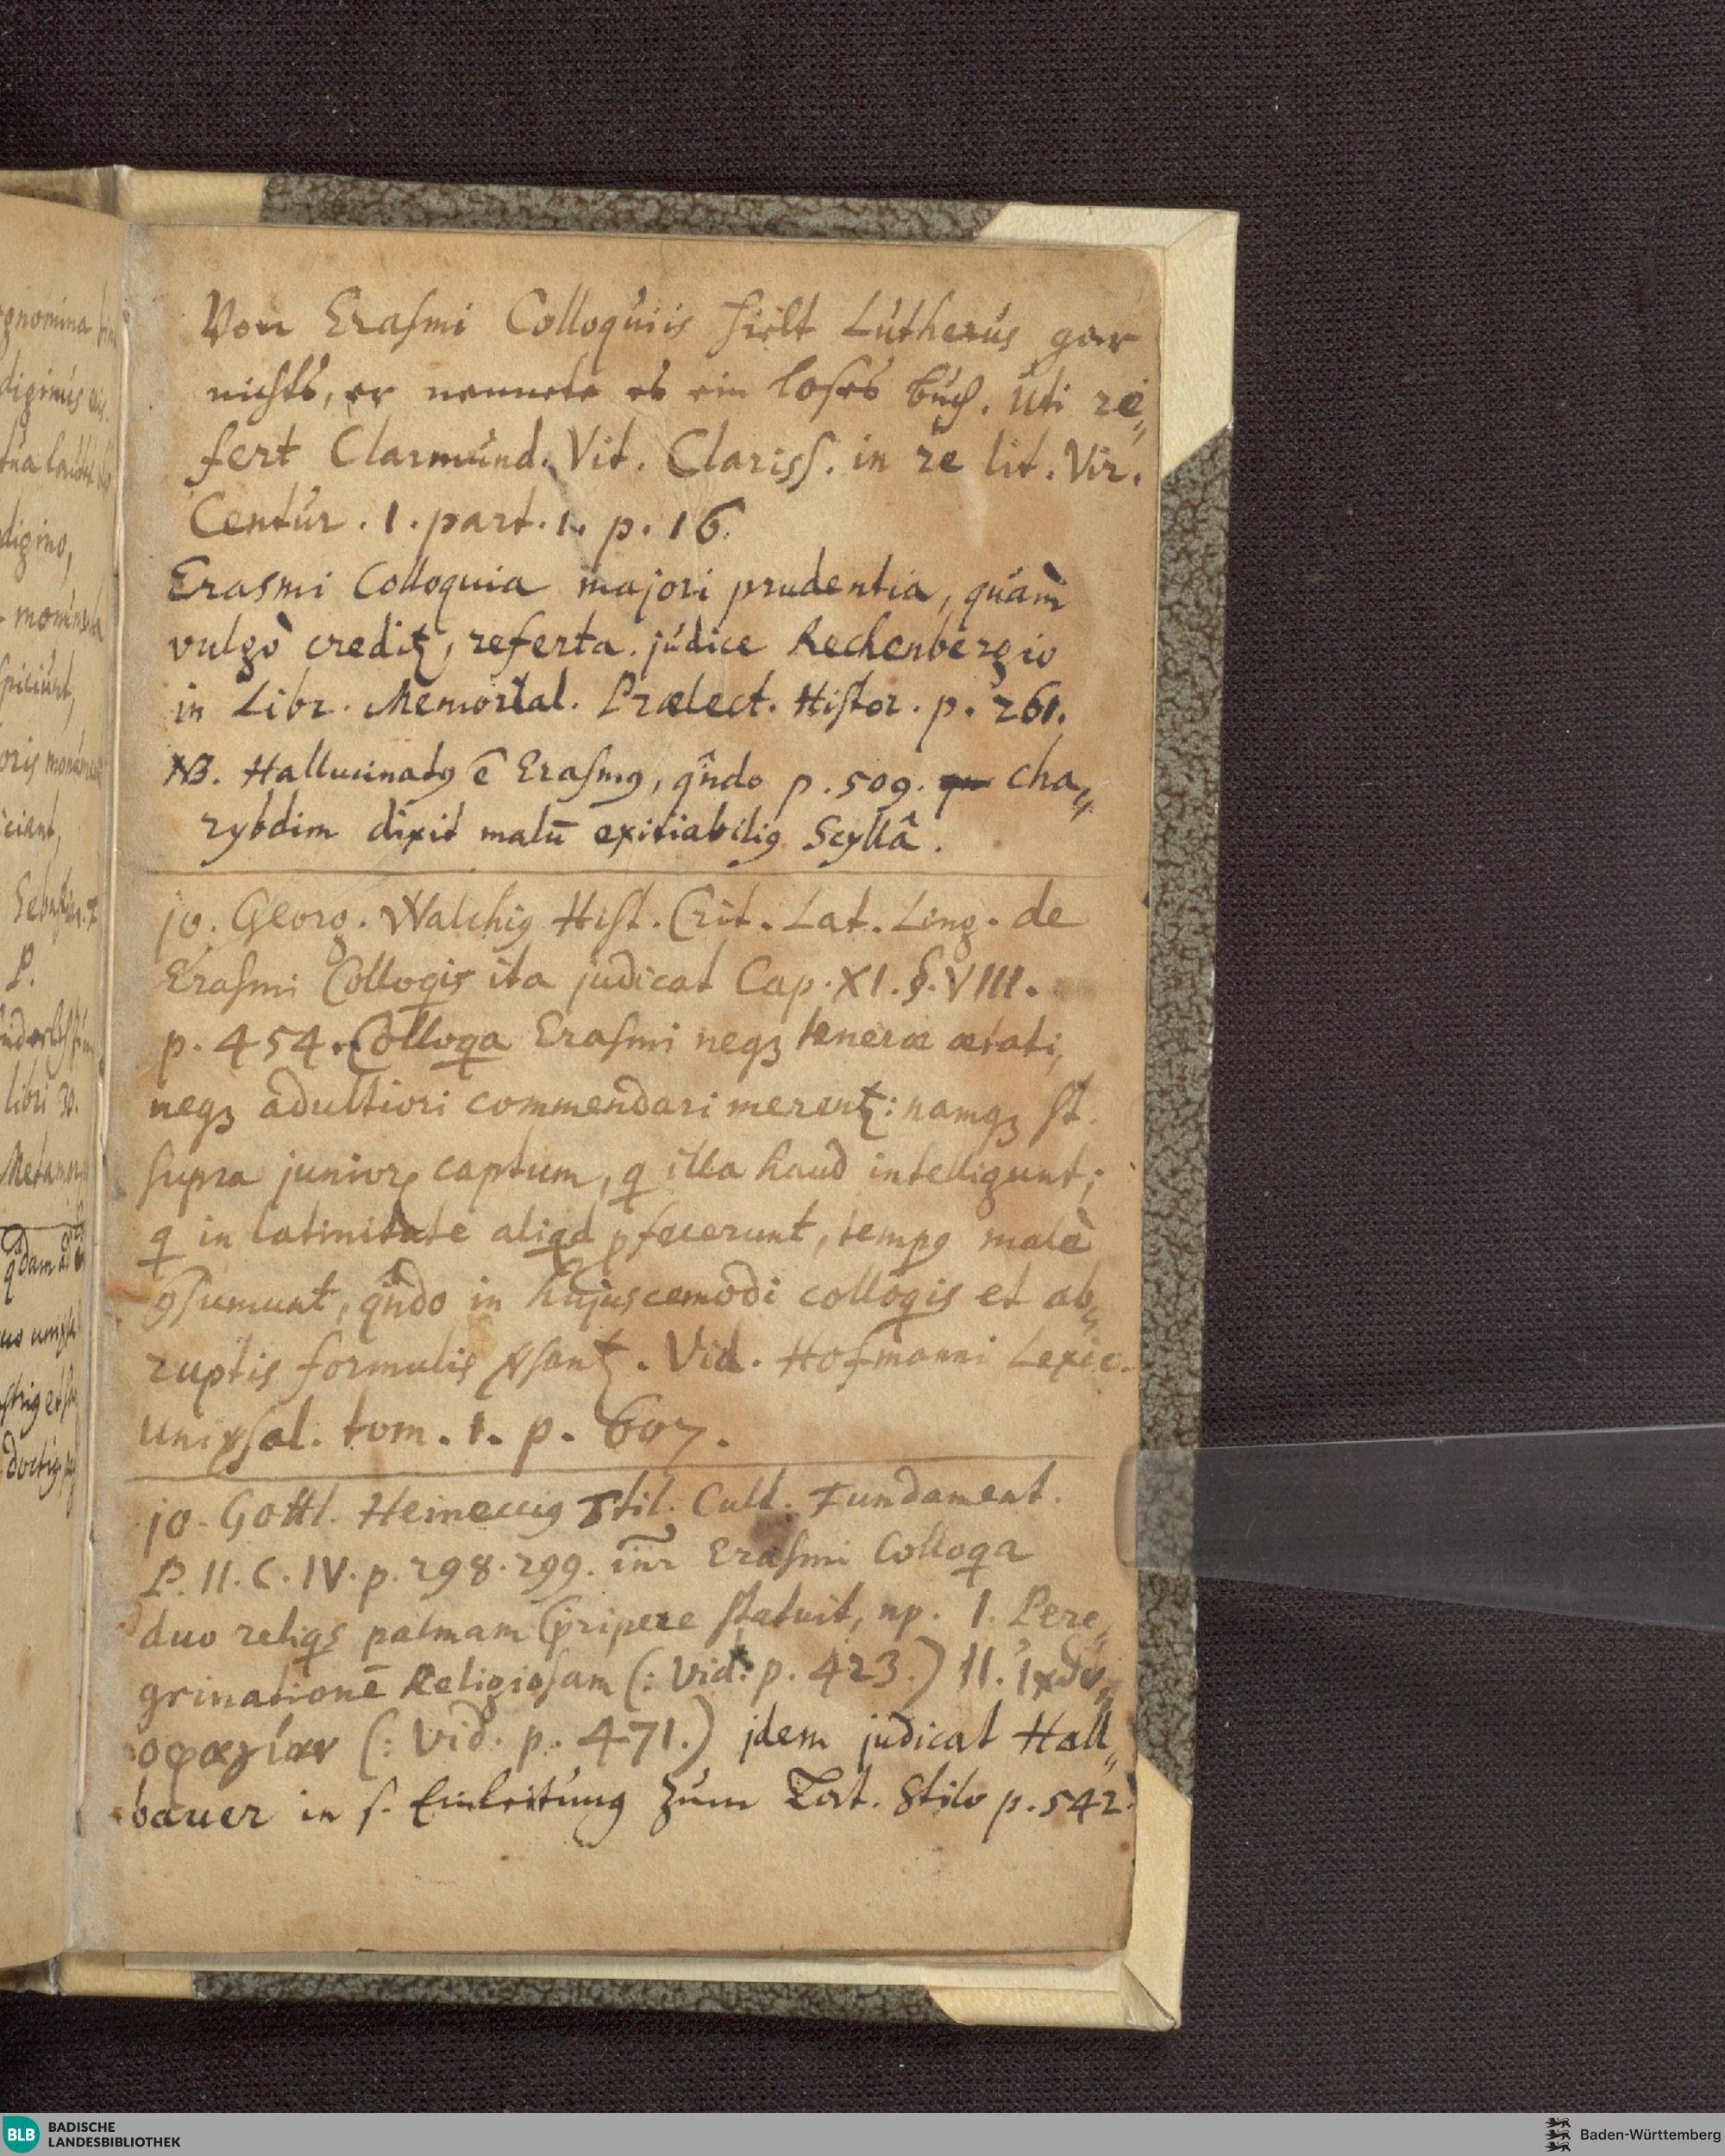 Von Erasmi Colloquiis hielt Lutherus gar
nichts, er nennete es ein loses buch. uti re„
fert Clarmund. Vit. Clariss. in re lit. Vir.
Centur. 1. part. 1. p. 16.
Erasmi Colloquia majori prudentia, quàm
vulgò creditꝛ, referta. judice Rechenbergio
in Libr. Memorial. Prælect. Histor. p. 261.
NB. Hallucinatꝰ ē Erasmꝰ, qn̂do p. 509. cha„
rybdim dixit malū exitiabiliꝰ Scyllâ.
jo. Georg. Walchiꝰ Hist. Crit. Lat. Ling. de
Erasmi Colloqis ita judicat Cap. XI. §. VIII.
p. 454. Colloqa Erasmi neqꝫ teneræ ætati,
neqꝫ adultiori commendari merentꝛ: namqꝫ st.
supra juniorꝭ captum, q illa haud intelligunt;
q in latinitate aliqd ꝓfecerunt, tempꝰ malè
ꝯsumunt, qn̂do in hujuscemodi colloqis et ab„
ruptis formulis ꝟsantꝛ. Vid. Hofmanni Lexic.
uniꝟsal. tom. 1. p. 607.
jo. Gottl. Heinecciꝰ Stil. Cult. Fundament.
P. II. C. IV. p. 298. 299. in̄r Erasmi Colloqa
duo reliqs palmam ꝑripere statuit, np. I. Pere„
grinationē Religiosam (: vid. p. 423.) II. Ἰχθυ„
οφαγίαν (: vid. p. 471.) jdem judicat Hall„
bauer in s. Einleitung zum Lat. Stilo p. 542
BLB BADISCHE
LANDESBIBLIOTHEK
Baden-Württemberg